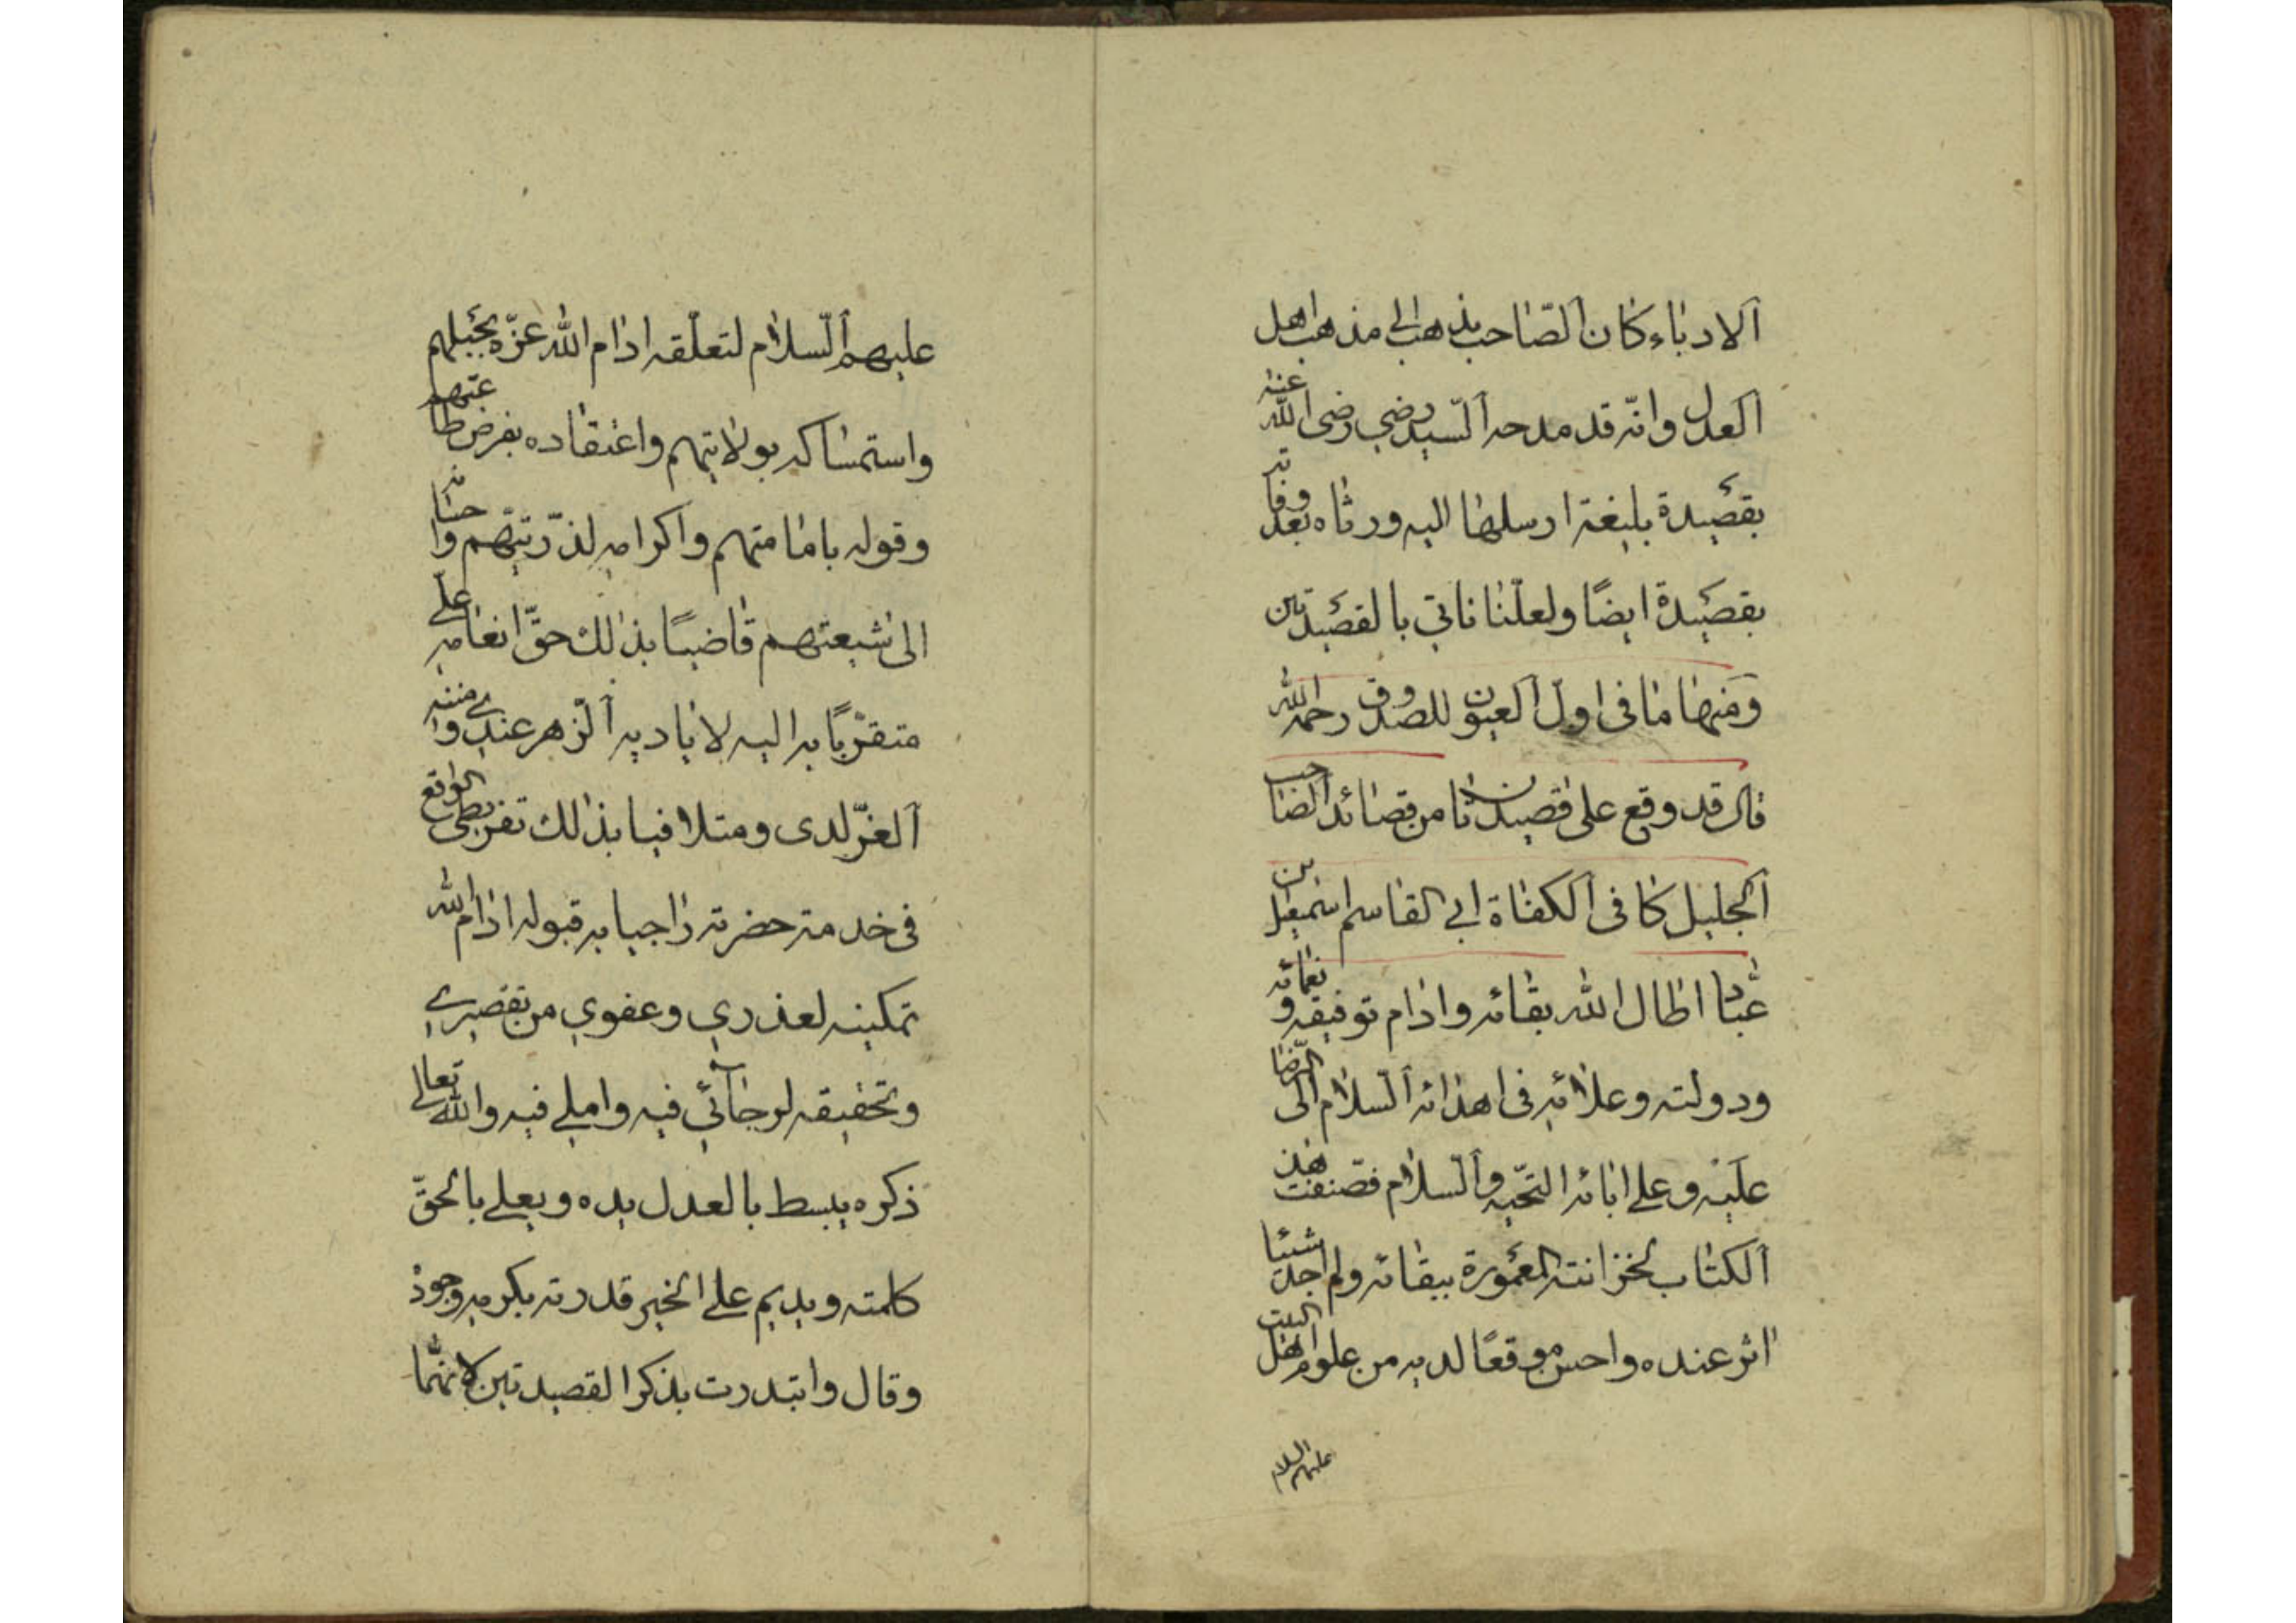 الادباء كان الصّاحب يذهب الى مذهب اهل
العدل وانّه قد مدحه السّيد رضي رضى الله عنه
بقصيدة بليغة ارسلها اليه ورثاه بعد وفاته
بقصيدة ايضًا ولعلّنا ناتي بالقصيدتين
ومنها ما فى اول العيون للصدوق رحمه الله
قال قد وقع على قصيدتان من قصائد الصّاحب
الجليل كافى الكفاة ابي القاسم اسمعيل بن
عبّاد اطال الله بقائه وادام توفيقه ونعمائه
ودولته وعلائه فى اهدائه السّلام الى الرّضا
عليه وعلى ابائه التّحيه والسّلام فصنّفت هذ
الكتاب لخزانته المعمورة ببقائه ولم اجد شيئا
اثر عنده واحسن موقعًا لديه من علوم اهل البيت
عليهم السلام
عليهم السّلام لتعلّقه ادام الله عزّه بحبلهم
واستمساكه بولايتهم واعتقاده بفرض طاعتهم
وقوله بامامتهم واكرامه لذرّيتهم واحسانه
الى شيعتهم قاضيًا بذالك حقّ انعامه علىّ
متقرّبًا به اليه لاياديه الزّهر عندي ومننه
الغرّ لدى ومتلافيا بذالك تفريطى الواقع
فى خدمته حضرته راجيا به قبوله ادام الله
تمكينه لعذري وعفوي من تقصيري
وتحقيقه لرجائي فيه واملي فيه والله تعالى
ذكره يبسط بالعدل يده ويعلي بالحقّ
كلمته ويديم على الخير قدرته بكرمه وجوده
وقال وابتدرت بذكر القصيدتين لانهّما